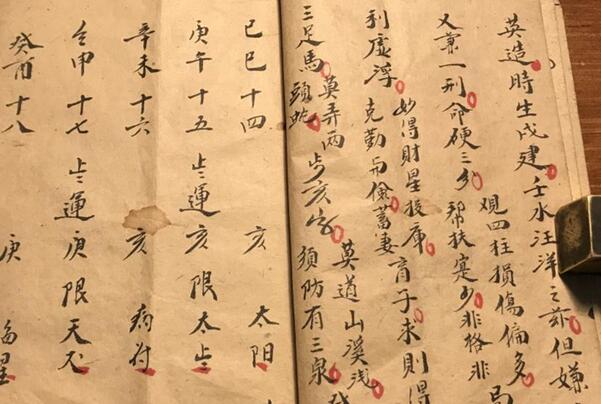 英造時生戊建壬水汪洋之兹但嫌
觀四柱損傷偏多
又兼一刑命硬三分幫扶寔少非格非
利虛浮妙得財星投庫
克勤而儉蓄妻育子求則得
三足馬莫弄两頭蛇步亥字莫道山溪浅須防有三泉
己巳十四 亥 太阳
庚午十五 運亥限太
辛未十六 亥 病符
壬申十七 運庚限天
癸酉十八 庚